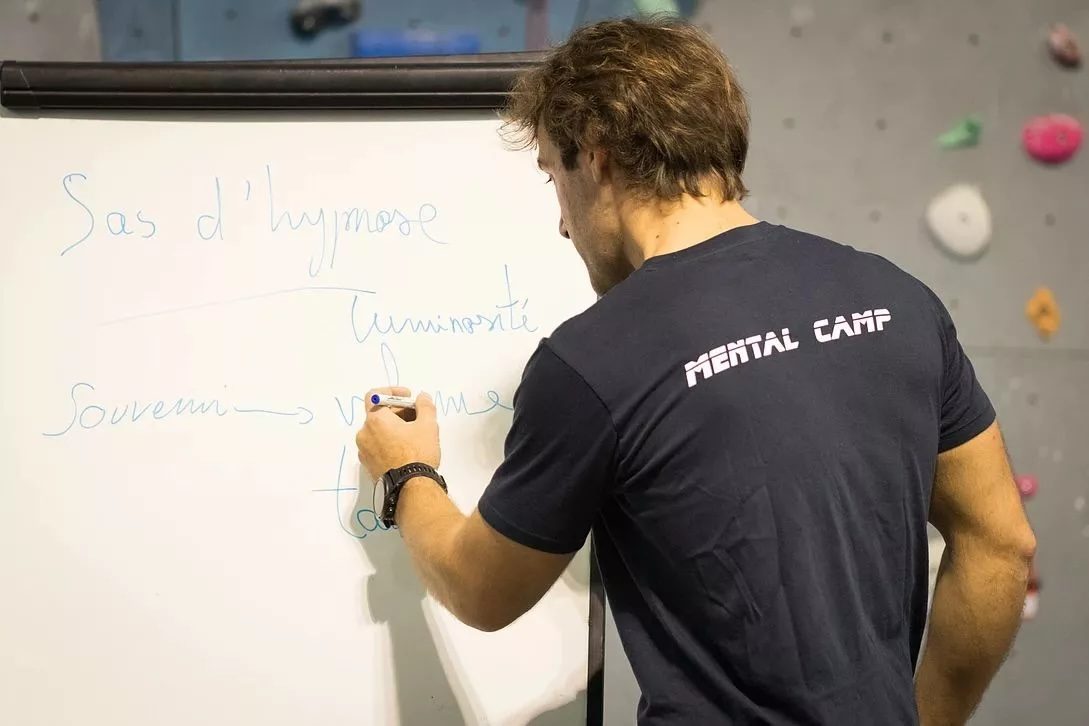 Sas d'hypnose
luminosité
Souvenir →
MENTAL CAMP